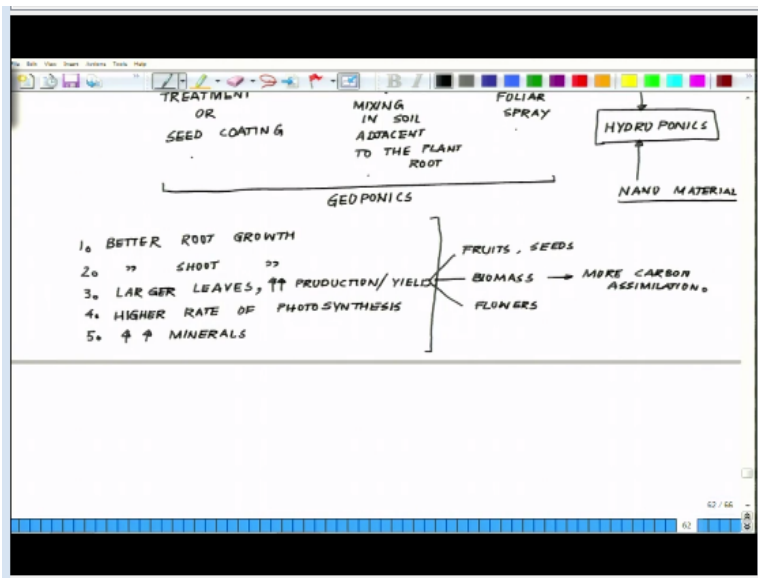 File Edit View Insert Actions Tools Help
TREATMENT
OR
SEED COATING
MIXING
IN SOIL
ADJACENT
TO THE PLANT
ROOT
FOLIAR
SPRAY
HYDROPONICS
NANO MATERIAL
GEOPONICS
1. BETTER ROOT GROWTH
2. " SHOOT "
3. LARGER LEAVES, ↑↑ PRODUCTION/YIELD
4. HIGHER RATE OF PHOTOSYNTHESIS
5. ↑ ↑ MINERALS
FRUITS, SEEDS
BIOMASS → MORE CARBON
ASSIMILATION.
FLOWERS
62 / 66
62